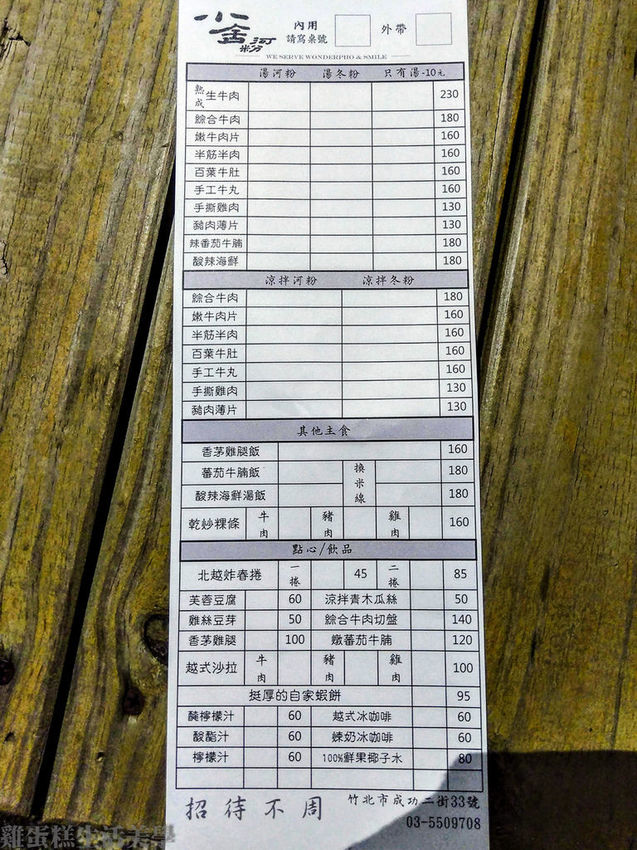 小金河粉
內用
請寫桌號
外帶
WE SERVE WONDERPHO & SMILE
湯河粉 湯冬粉 只有湯-10元
熟成生牛肉 230
綜合牛肉 180
嫩牛肉片 160
半筋半肉 160
百葉牛肚 160
手工牛丸 160
手撕雞肉 130
豬肉薄片 130
辣番茄牛腩 180
酸辣海鮮 180
涼拌河粉 涼拌冬粉
綜合牛肉 180
嫩牛肉片 160
半筋半肉 160
百葉牛肚 160
手工牛丸 160
手撕雞肉 130
豬肉薄片 130
其他主食
香茅雞腿飯 160
蕃茄牛腩飯 換米線 180
酸辣海鮮湯飯 180
乾炒粿條 牛肉 豬肉 雞肉 160
點心/飲品
北越炸春捲 一捲 45 二捲 85
芙蓉豆腐 60 涼拌青木瓜絲 50
雞絲豆芽 50 綜合牛肉切盤 140
香茅雞腿 100 燉蕃茄牛腩 120
越式沙拉 牛肉 豬肉 雞肉 100
挺厚的自家蝦餅 95
醃檸檬汁 60 越式冰咖啡 60
酸酯汁 60 煉奶冰咖啡 60
檸檬汁 60 100%鮮果椰子水 80
招待不周
竹北市成功二街33號
03-5509708
雞蛋糕生活美學